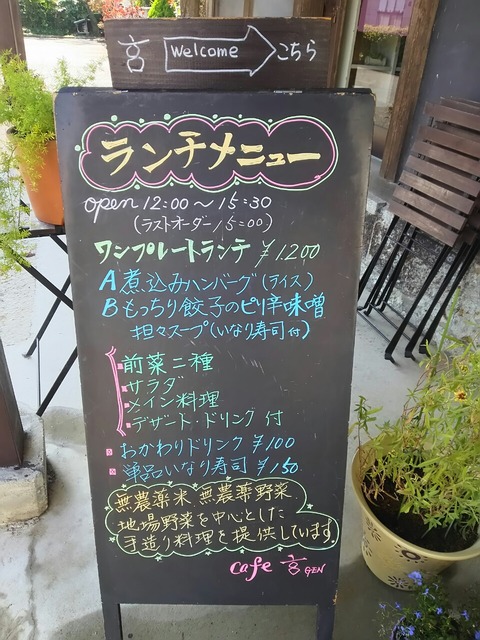 玄 welcome こちら
ランチメニュー
open 12:00〜15:30
(ラストオーダー 15:00)
ワンプレートランチ ¥1200
A 煮込みハンバーグ(ライス)
B もっちり餃子のピリ辛味噌
担々スープ(いなり寿司付)
前菜二種
・サラダ
・メイン料理
・デザート・ドリンク 付
おかわりドリンク ¥100
単品いなり寿司 ¥150
無農薬米 無農薬野菜
地場野菜を中心とした
手造り料理を提供しています。
cafe 玄 GEN